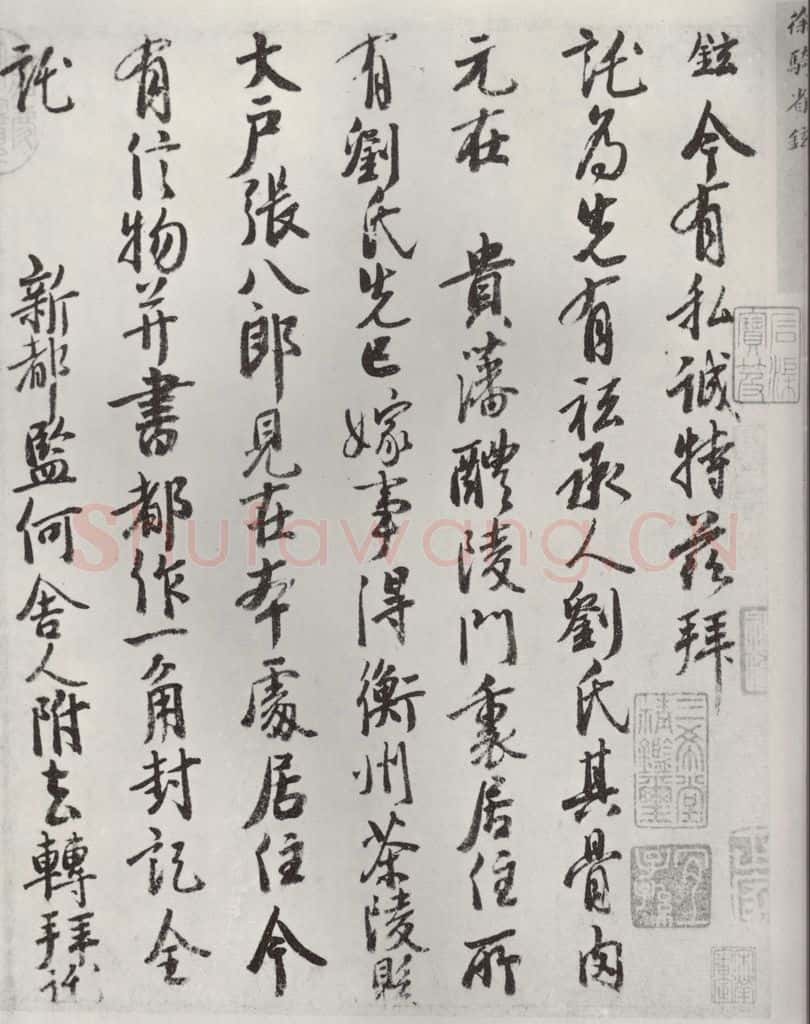 徐騎省鉉
鉉今有私誠特茲拜
託為先有祗承人劉氏其骨肉
元在 貴藩醴陵門裏居住所
有劉氏先已嫁事得衡州茶陵縣
大戶張八郎見在本處居住今
有信物并書都作一角封記全
託 新都監何舍人附去轉拜託
Shufawang.CN
三希堂精鑑璽
宜子孫